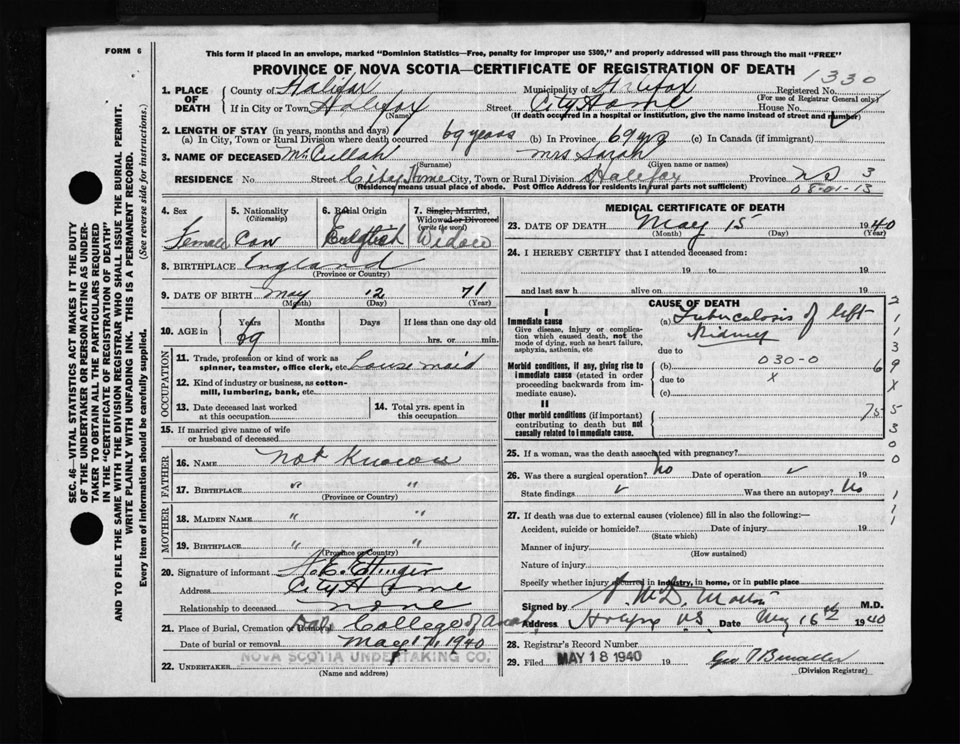 FORM 6
This form if placed in an envelope, marked "Dominion Statistics—Free, penalty for improper use $300," and properly addressed will pass through the mail "FREE"
PROVINCE OF NOVA SCOTIA—CERTIFICATE OF REGISTRATION OF DEATH
1330
1. PLACE OF DEATH
County of Halifax Municipality of Halifax Registered No.
(For use of Registrar General only)
If in City or Town Halifax Street City Home House No.
(Name) (If death occurred in a hospital or institution, give the name instead of street and number)
2. LENGTH OF STAY (in years, months and days)
(a) In City, Town or Rural Division where death occurred 69 years (b) In Province 69 yrs (c) In Canada (if immigrant)
3. NAME OF DECEASED McCullah Mrs Sarah
(Surname) (Given name or names)
RESIDENCE No Street City Home City, Town or Rural Division Halifax Province N S 3
(Residence means usual place of abode. Post Office Address for residents in rural parts not sufficient) 08-01-13
4. Sex Female
5. Nationality (Citizenship) Can
6. Racial Origin English
7. Single, Married, Widowed or Divorced (write the word) Widow
8. BIRTHPLACE England
(Province or Country)
9. DATE OF BIRTH May 12 71
(Month) (Day) (Year)
10. AGE in Years Months Days If less than one day
69 hrs. or min.
OCCUPATION
11. Trade, profession or kind of work as spinner, teamster, office clerk, etc. house maid
12. Kind of industry or business, as cotton-mill, lumbering, bank, etc.
13. Date deceased last worked at this occupation
14. Total yrs. spent in this occupation
15. If married give name of wife or husband of deceased
FATHER
16. NAME Not Known
17. BIRTHPLACE " "
(Province or Country)
MOTHER
18. MAIDEN NAME " "
19. BIRTHPLACE " "
(Province or Country)
20. Signature of informant
Address City Home
Relationship to deceased none
21. Place of Burial, Cremation or Removal Dal. College of
Date of burial or removal May 17, 1940
22. UNDERTAKER NOVA SCOTIA UNDERTAKING CO.
(Name and address)
MEDICAL CERTIFICATE OF DEATH
23. DATE OF DEATH May 15 1940
(Month) (Day) (Year)
24. I HEREBY CERTIFY that I attended deceased from:
19 to 19
and last saw h alive on 19
CAUSE OF DEATH
I
Immediate cause (a) Tuberculosis of left Kidney
Give disease, injury or complication which caused death, not the mode of dying, such as heart failure, asphyxia, asthenia, etc
due to
Morbid conditions, if any, giving rise to immediate cause (stated in order proceeding backwards from immediate cause).
(b) 030-0
due to x
(c)
II
Other morbid conditions (if important) contributing to death but not causally related to immediate cause.
75
25. If a woman, was the death associated with pregnancy?
26. Was there a surgical operation? No Date of operation
State findings Was there an autopsy? No
27. If death was due to external causes (violence) fill in also the following:—
Accident, suicide or homicide? Date of injury 19
(State which)
Manner of injury
(How sustained)
Nature of injury
Specify whether injury occurred in industry, in home, or in public place
Signed by M.D.
Address Halifax N.S. Date May 16th 1940
28. Registrar's Record Number
29. Filed MAY 18 1940 19
(Division Registrar)
SEC. 46—VITAL STATISTICS ACT MAKES IT THE DUTY OF THE UNDERTAKER OR PERSON ACTING AS UNDERTAKER TO OBTAIN ALL THE PARTICULARS REQUIRED IN THE "CERTIFICATE OF REGISTRATION OF DEATH" AND TO FILE THE SAME WITH THE DIVISION REGISTRAR WHO SHALL ISSUE THE BURIAL PERMIT.
WRITE PLAINLY WITH UNFADING INK. THIS IS A PERMANENT RECORD.
Every item of information should be carefully supplied. (See reverse side for instructions.)